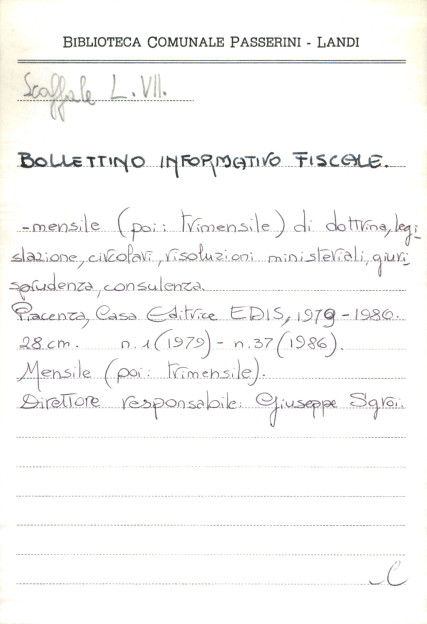 BIBLIOTECA COMUNALE PASSERINI - LANDI
Scaffale L. VII.
BOLLETTINO INFORMATIVO FISCALE.
-mensile (poi: trimensile) di dottrina, legi-
slazione, circolari, risoluzioni ministeriali, giuri-
sprudenza, consulenza.
Piacenza, Casa Editrice EDIS, 1979-1986.
28 cm. n. 1 (1979) - n. 37 (1986).
Mensile (poi: trimensile).
Direttore responsabile: Giuseppe Sgroi.